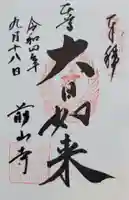 奉拝
本尊
大日如来
令和四年
九月十八日
前山寺